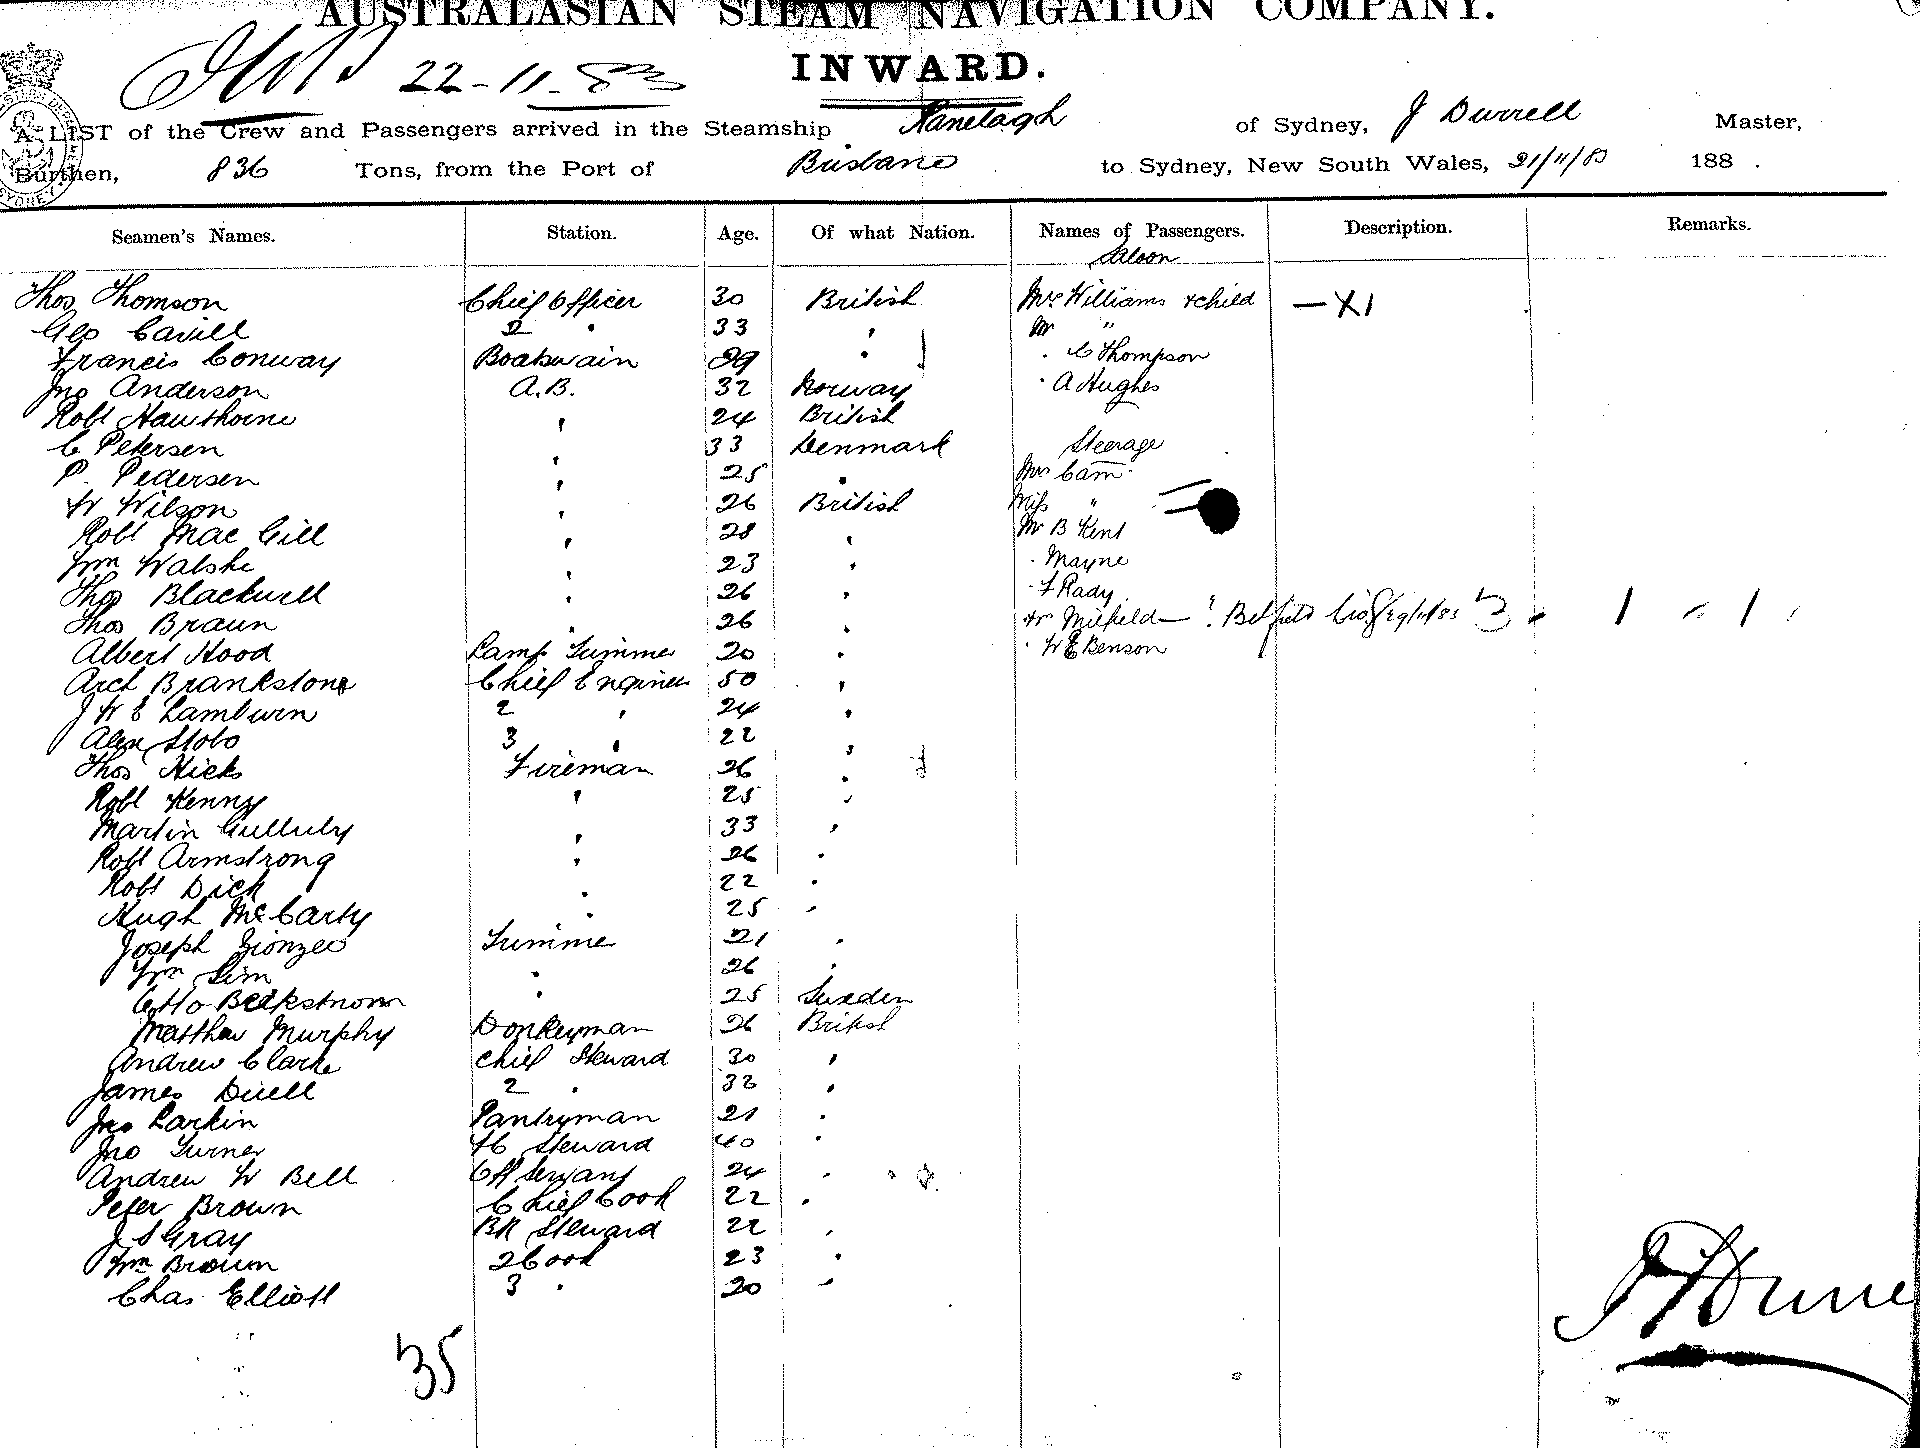 AUSTRALASIAN STEAM NAVIGATION COMPANY.
22-11-83
INWARD.
A LIST of the Crew and Passengers arrived in the Steamship Ranelagh of Sydney, J Durrell Master,
Burthen, 836 Tons, from the Port of Brisbane to Sydney, New South Wales, 21/11/83 188 .
Seamen's Names. Station. Age. Of what Nation. Names of Passengers. Description. Remarks.
Saloon
Thos Thomson Chief Officer 30 British Mrs Williams & child — X1
Geo Cavill 2 " 33 " Mr "
Francis Conway Boatswain 29 " " C Thompson
Jno Anderson A.B. 32 Norway " A Hughes
Robt Hawthorne " 24 British
C Petersen " 33 Denmark Steerage
P. Pedersen " 25 " Mrs Cam
W Wilson " 26 British Miss "
Robt Mac Gill " 28 " Mr B Kent
Wm Walshe " 23 " " Mayne
Thos Blackwell " 26 " " F Rady
Thos Braun " 26 "
Albert Hood Lamp Trimmer 20 " " W E Benson
Arch Brankstone Chief Engineer 50 "
J W E Lamburn 2 " 24 "
Alex Stobo 3 " 22 "
Thos Hicks Fireman 26 "
Robt Kenny " 25 "
Martin " 33 "
Robt Armstrong " 26 "
Robt Dick " 22 "
Hugh McCarty " 25 "
Joseph Trimmer 21 "
Wm Sim " 26 "
Otto " 25 Sweden
Matthew Murphy Donkeyman 26 British
Andrew Clarke Chief Steward 30 "
James Duell 2 " 32 "
Jno Larkin Pantryman 21 "
Jno Turner Steward 40 "
Andrew W Bell Servant 24 "
Peter Brown Chief Cook 22 "
J S Gray Steward 22 "
Wm Brown 2 Cook 23 "
Chas Elliott 3 " 20 "
35